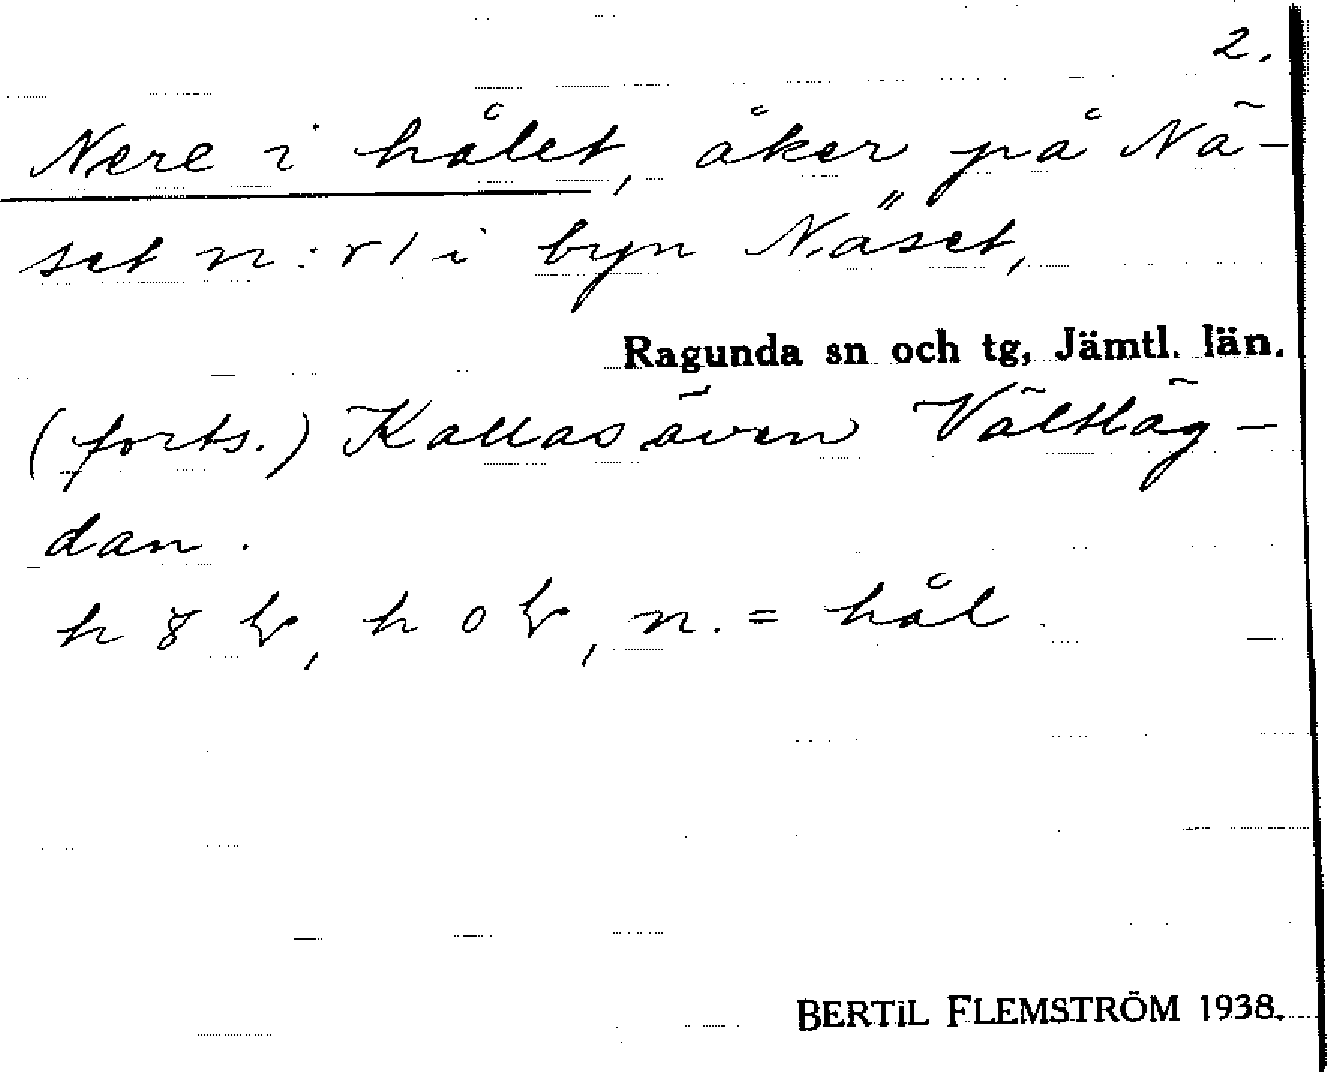 2.
Nere i hålet, åker på Nä-
set n:r 1 i byn Näset,
Ragunda sn och tg, Jämtl. län.
(forts.) Kallas även Vältläg-
dan.
n. = hål.
BERTIL FLEMSTRÖM 1938.